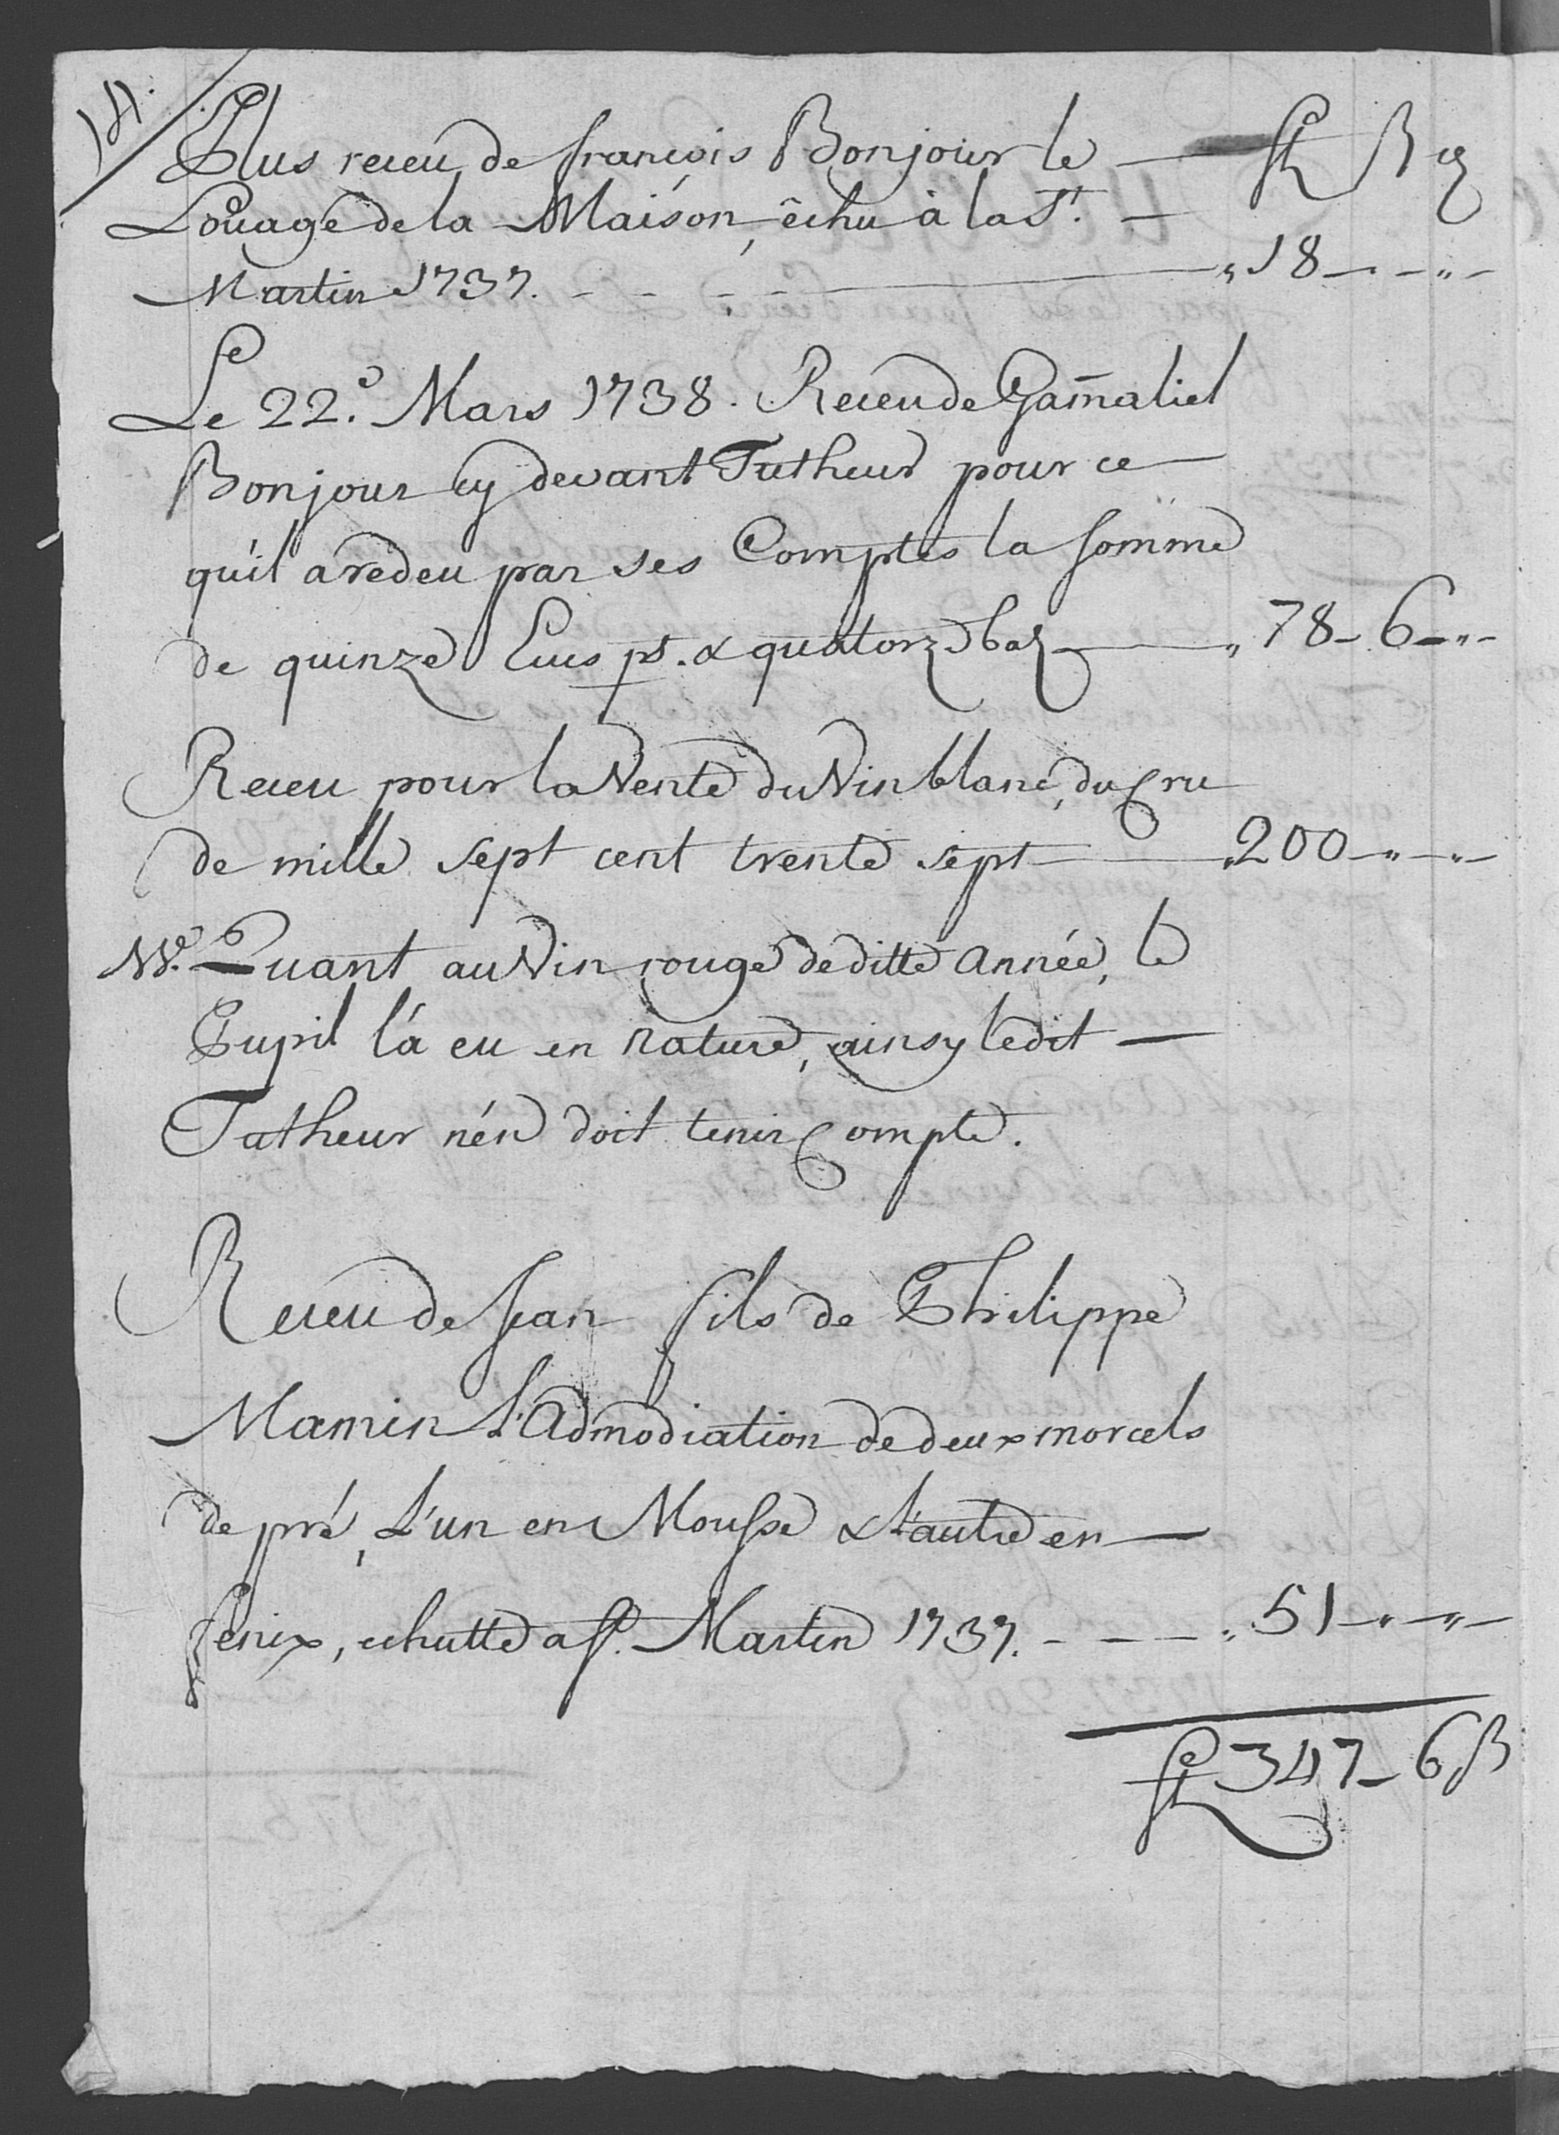 Plus receu de françois Bonjour le — fl ß
Loüage de la Maison, êchu à la St. —
Martin 1737. - - - - — „ 18 — - „ -
Le 22e. Mars 1738. Receu de Gam̄aliel
Bonjour cy devant Tutheur pour ce —
qu'il a redeu par ses Comptes la somme
de quinze Ecus pt. & quatorze baz — „ 78 - 6 - „ -
Receu pour la Vente du Vin blanc, du Cru
de mille sept cent trente sept — „ 200 - „ - „ -
NB. Quant au Vin rouge de ditte année, le
Pupil l'a eu en Nature, ainsy ledit —
Tutheur n'en doit tenir Compte.
Receu de Jean fils de Philippe
Mamin L'Admodiation de deux morcels
de pré, L'un en Mousse & L'autre en —
fenix, echutte a St. Martin 1737. - — — „ 51 - „ - „ -
fl 347 - 6 ß